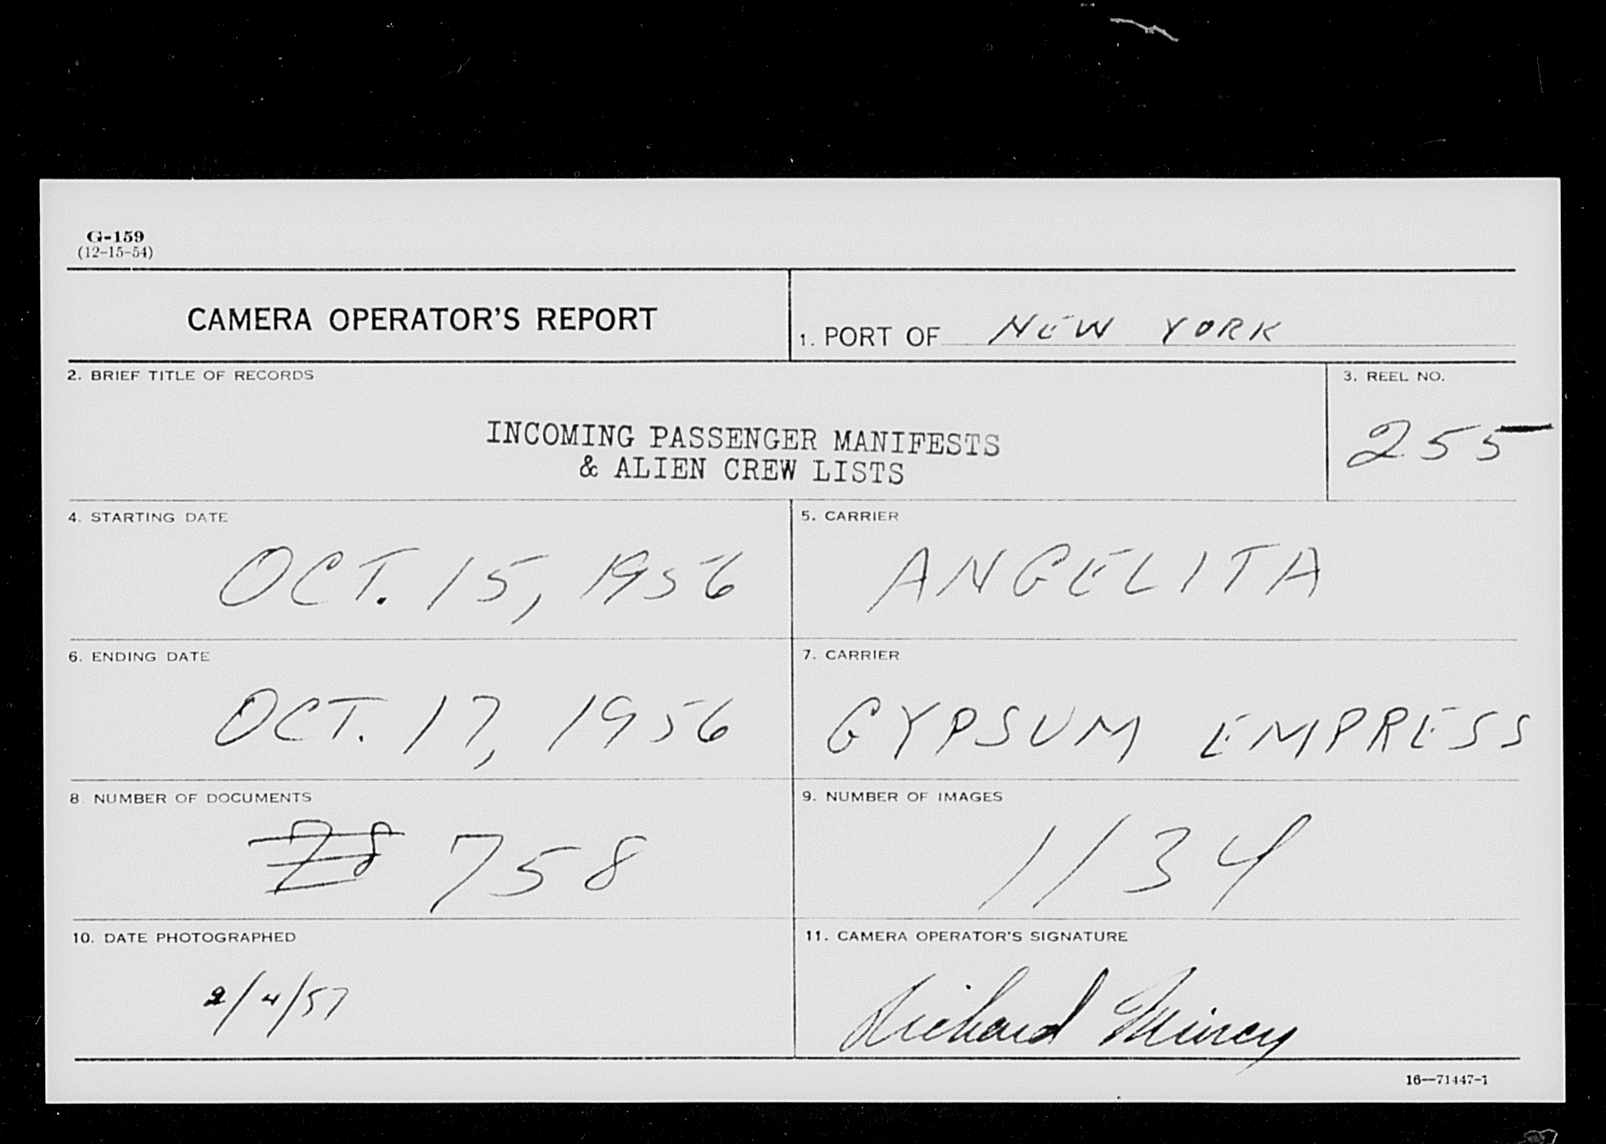 G-159
(12-15-54)
CAMERA OPERATOR'S REPORT
1. PORT OF NEW YORK
2. BRIEF TITLE OF RECORDS
INCOMING PASSENGER MANIFESTS
& ALIEN CREW LISTS
3. REEL NO.
255
4. STARTING DATE
OCT. 15, 1956
5. CARRIER
ANGELITA
6. ENDING DATE
OCT. 17, 1956
7. CARRIER
GYPSUM EMPRESS
8 NUMBER OF DOCUMENTS
758
9. NUMBER OF IMAGES
1134
10. DATE PHOTOGRAPHED
2/4/57
11. CAMERA OPERATOR'S SIGNATURE
Richard
16—71447-1